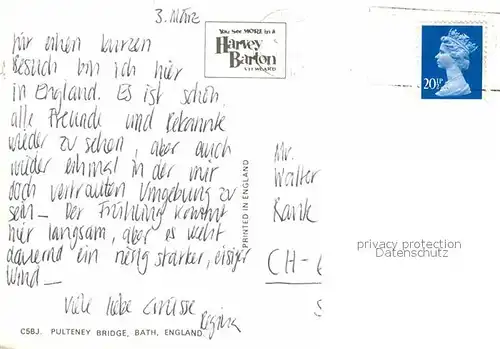 3. März
You See MORE in a
Harvey
Barton
VIEWCARD
20½P
Für einen kurzen
Besuch bin ich hier
in England. Es ist schön,
alle Freunde und Bekannte
wieder zu sehen, aber auch
wieder einmal in der mir
doch vertrauten Umgebung zu
sein – Der Frühling kommt
hier langsam, aber es weht
dauernd ein riesig starker, eisiger
Wind –
Viele liebe Grüsse
Regina
C5BJ. PULTENEY BRIDGE, BATH, ENGLAND
PRINTED IN ENGLAND
Mr.
Walter
Rank
CH-6
S
privacy protection
Datenschutz